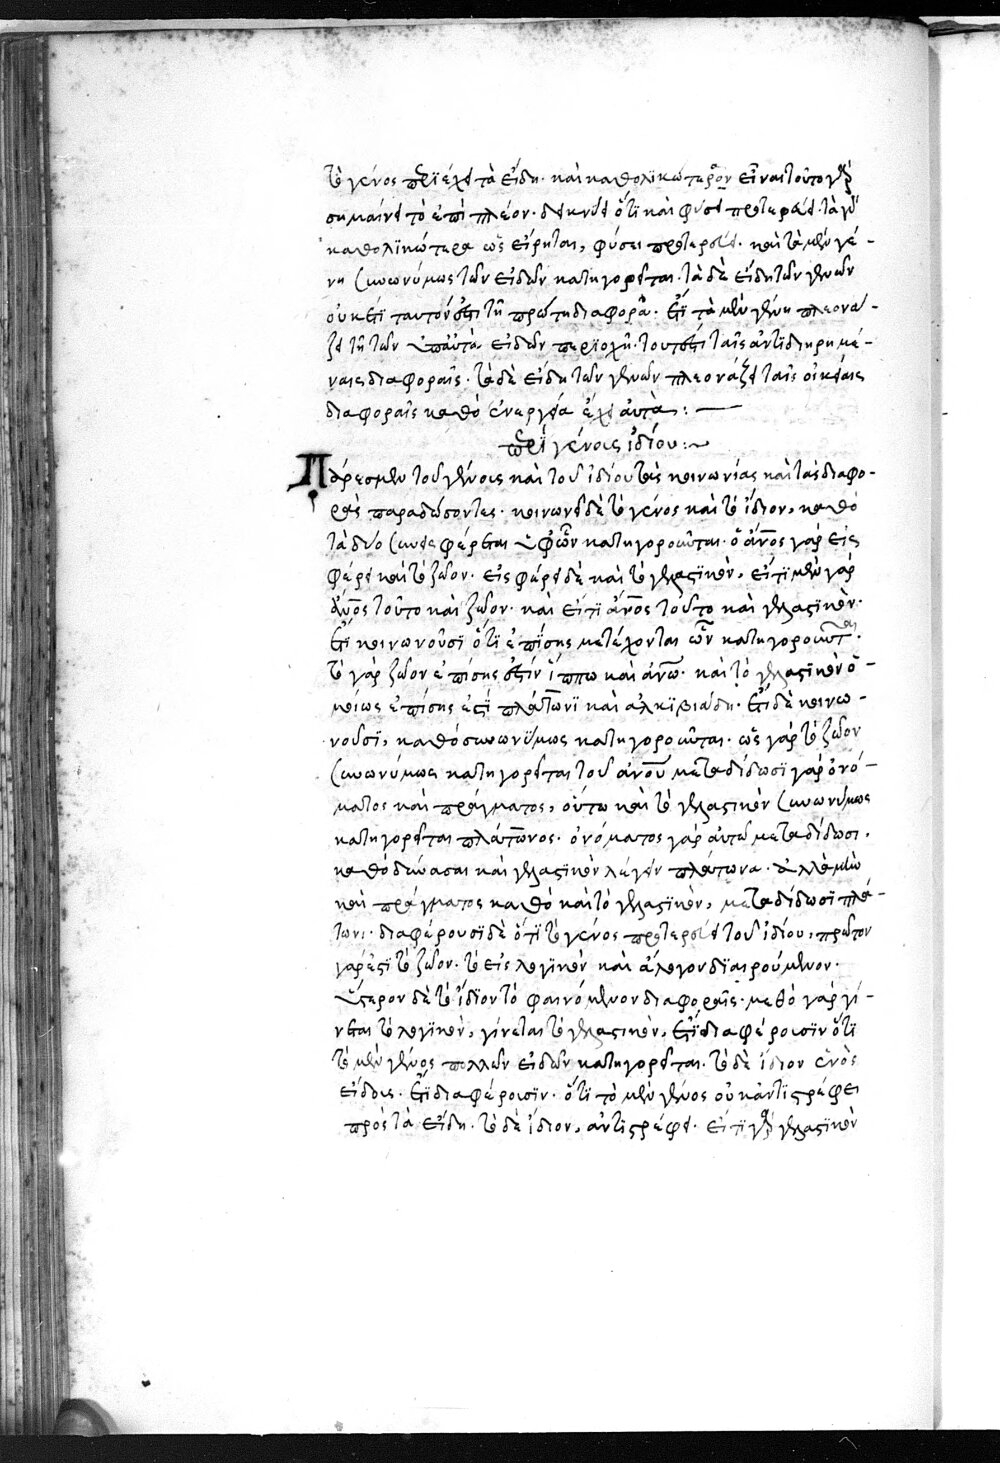 τὸ γένος περιέχει τὰ εἴδη. καὶ καθολικώτερον εἶναι τοῦτο γὰρ
σημαίνει τὸ ἐπὶ πλέον. δείκνυσι ὅτι καὶ φύσει προτερεύει. τὰ γὰρ
καθολικώτερα ὡς εἴρηται, φύσει προτερεύει. καὶ τὰ μὲν γέ-
νη συνωνύμως τῶν εἰδῶν κατηγορεῖται. τὰ δὲ εἴδη τῶν γενῶν
οὐκέτι ταυτόν ἐστι τῇ πρώτῃ διαφορᾷ. ἔτι τὰ μὲν γένη πλεονά-
ζει τῇ τῶν ὑπ' αὐτὰ εἰδῶν περιοχῇ. τουτέστι ταῖς ἀντιδιῃρημέ-
ναις διαφοραῖς. τὰ δὲ εἴδη τῶν γενῶν πλεονάζει ταῖς οἰκείαις
διαφοραῖς καθὸ ἐνεργείᾳ ἔχει αὐτὰ:
περὶ γένους ἰδίου:
Πάρεσμεν τοῦ γένους καὶ τοῦ ἰδίου τὰς κοινωνίας καὶ τὰς διαφο-
ρὰς παραδώσοντες. κοινωνεῖ δὲ τὸ γένος καὶ τὸ ἴδιον, καθὸ
τὰ δύο συνεισφέρεται ὑφ' ὧν κατηγοροῦνται. ὁ ἄνος γὰρ εἰσ
φέρει καὶ τὸ ζῶον. εἰσφέρει δὲ καὶ τὸ γελαστικὸν, εἴ τι μὲν γὰρ
ἄνος τοῦτο καὶ ζῶον. καὶ εἴ τι ἄνος τοῦτο καὶ γελαστικὸν.
ἔτι κοινωνοῦσι ὅτι ἐπίσης μετέχονται ὧν κατηγοροῦνται.
τὸ γὰρ ζῶον ἐπίσης ἐστὶν ἵππω καὶ ἀνω. καὶ τὸ γελαστικὸν ὁ-
μοίως ἐπίσης ἐστὶ πλάτωνι καὶ ἀλκιβιάδη. ἔτι δὲ κοινω-
νοῦσι, καθὸ συνωνύμως κατηγοροῦνται. ὡς γὰρ τὸ ζῶον
συνωνύμως κατηγορεῖται τοῦ ἀνου μεταδίδωσι γὰρ ὀνό-
ματος καὶ πράγματος, οὕτω καὶ τὸ γελαστικὸν συνωνύμως
κατηγορεῖται πλάτωνος. ὀνόματος γὰρ αὐτῶ μεταδίδωσι,
καθὸ δύνασαι καὶ γελαστικὸν λέγειν πλάτωνα. ἀλλὰ μὴν
καὶ πράγματος καθὸ καὶ τὸ γελαστικὸν, μεταδίδωσι πλά-
τωνι. διαφέρουσι δὲ ὅτι τὸ γένος προτερεύει τοῦ ἰδίου, πρῶτον
γάρ ἐστι τὸ ζῶον. τὸ εἰς λογικὸν καὶ ἄλογον διαιρούμενον.
ὕστερον δὲ τὸ ἴδιον τὸ φαινόμενον διαφοραῖς. μεθὸ γὰρ γί-
νεται τὸ λογικὸν, γίνεται τὸ γελαστικὸν. ἔτι διαφέρουσιν ὅτι
τὸ μὲν γένος πολλῶν εἰδῶν κατηγορεῖται. τὸ δὲ ἴδιον ἑνὸς
εἴδους. ἔτι διαφέρουσιν. ὅτι τὸ μὲν γένος οὐκ ἀντιστρέφει
πρὸς τὰ εἴδη. τὸ δὲ ἴδιον, ἀντιστρέφει. εἴ τι γὰρ γελαστικὸν